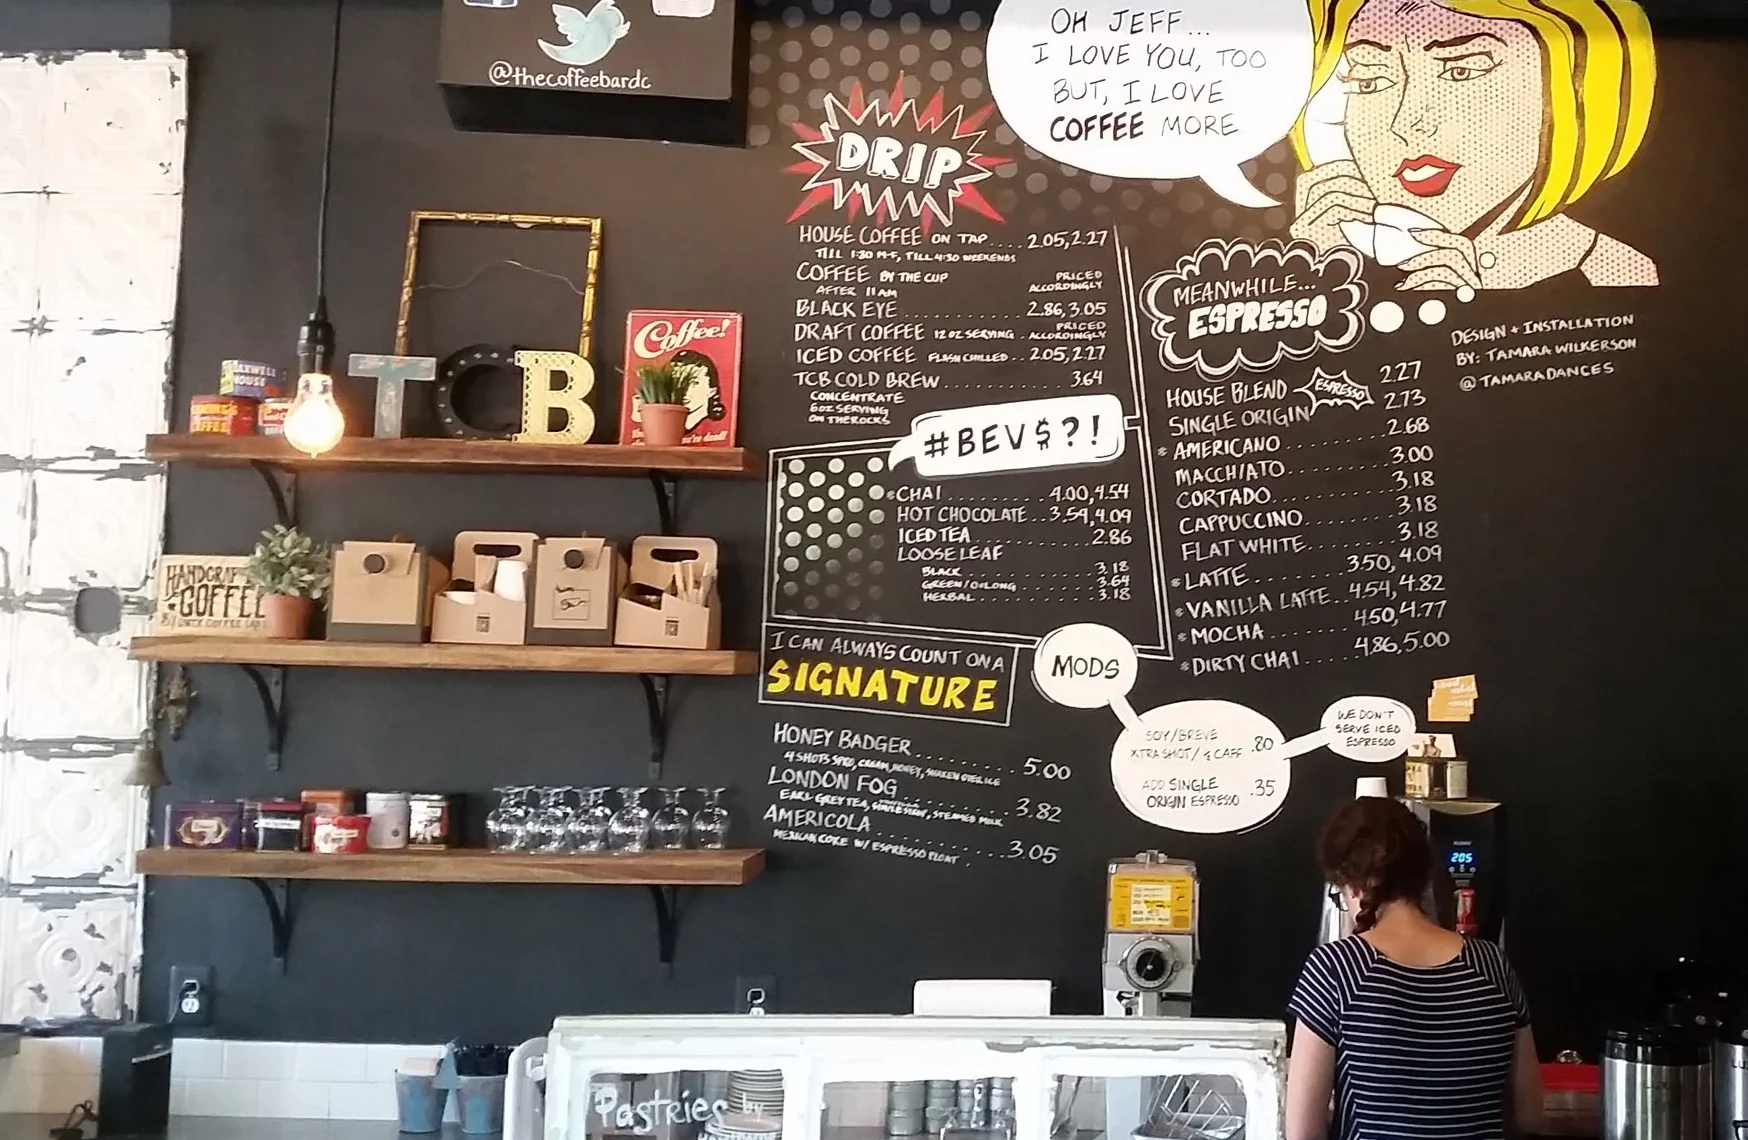 @thecoffeebardc
OH JEFF...
I LOVE YOU, TOO
BUT, I LOVE
COFFEE MORE
DRIP
HOUSE COFFEE ON TAP .... 2.05, 2.27
TILL 1:30 M-F, TILL 4:30 WEEKENDS
COFFEE BY THE CUP PRICED ACCORDINGLY
AFTER 11AM
BLACK EYE ............ 2.86, 3.05
DRAFT COFFEE 12 OZ SERVING .. PRICED ACCORDINGLY
ICED COFFEE FLASH CHILLED .. 2.05, 2.27
TCB COLD BREW ............ 3.64
CONCENTRATE
6OZ SERVING
ON THE ROCKS
MEANWHILE...
ESPRESSO
DESIGN + INSTALLATION
BY: TAMARA WILKERSON
@TAMARADANCES
HOUSE BLEND ESPRESSO 2.27
SINGLE ORIGIN 2.73
* AMERICANO ......... 2.68
MACCHIATO ......... 3.00
CORTADO ......... 3.18
CAPPUCCINO ......... 3.18
FLAT WHITE ......... 3.18
* LATTE ........ 3.50, 4.09
* VANILLA LATTE .. 4.54, 4.82
* MOCHA ....... 4.50, 4.77
* DIRTY CHAI .... 4.86, 5.00
#BEV$?!
* CHAI ......... 4.00, 4.54
HOT CHOCOLATE .. 3.59, 4.09
ICED TEA ............ 2.86
LOOSE LEAF
BLACK ............ 3.18
GREEN/OOLONG ........ 3.64
HERBAL ............ 3.18
I CAN ALWAYS COUNT ON A
SIGNATURE
HONEY BADGER ......... 5.00
4 SHOTS SPRO, CREAM, HONEY, SHAKEN OVER ICE
LONDON FOG ......... 3.82
EARL GREY TEA, STEAMED MILK
AMERICOLA ......... 3.05
MEXICAN COKE W/ ESPRESSO FLOAT
MODS
SOY/BREVE
XTRA SHOT/ ½ CAFF .80
ADD SINGLE
ORIGIN ESPRESSO .35
WE DON'T
SERVE ICED
ESPRESSO
MAXWELL
HOUSE
COFFEE
TCB
Coffee!
you're dead!
HANDCRAFTED
COFFEE
TCB
TCB
205
Pastries by